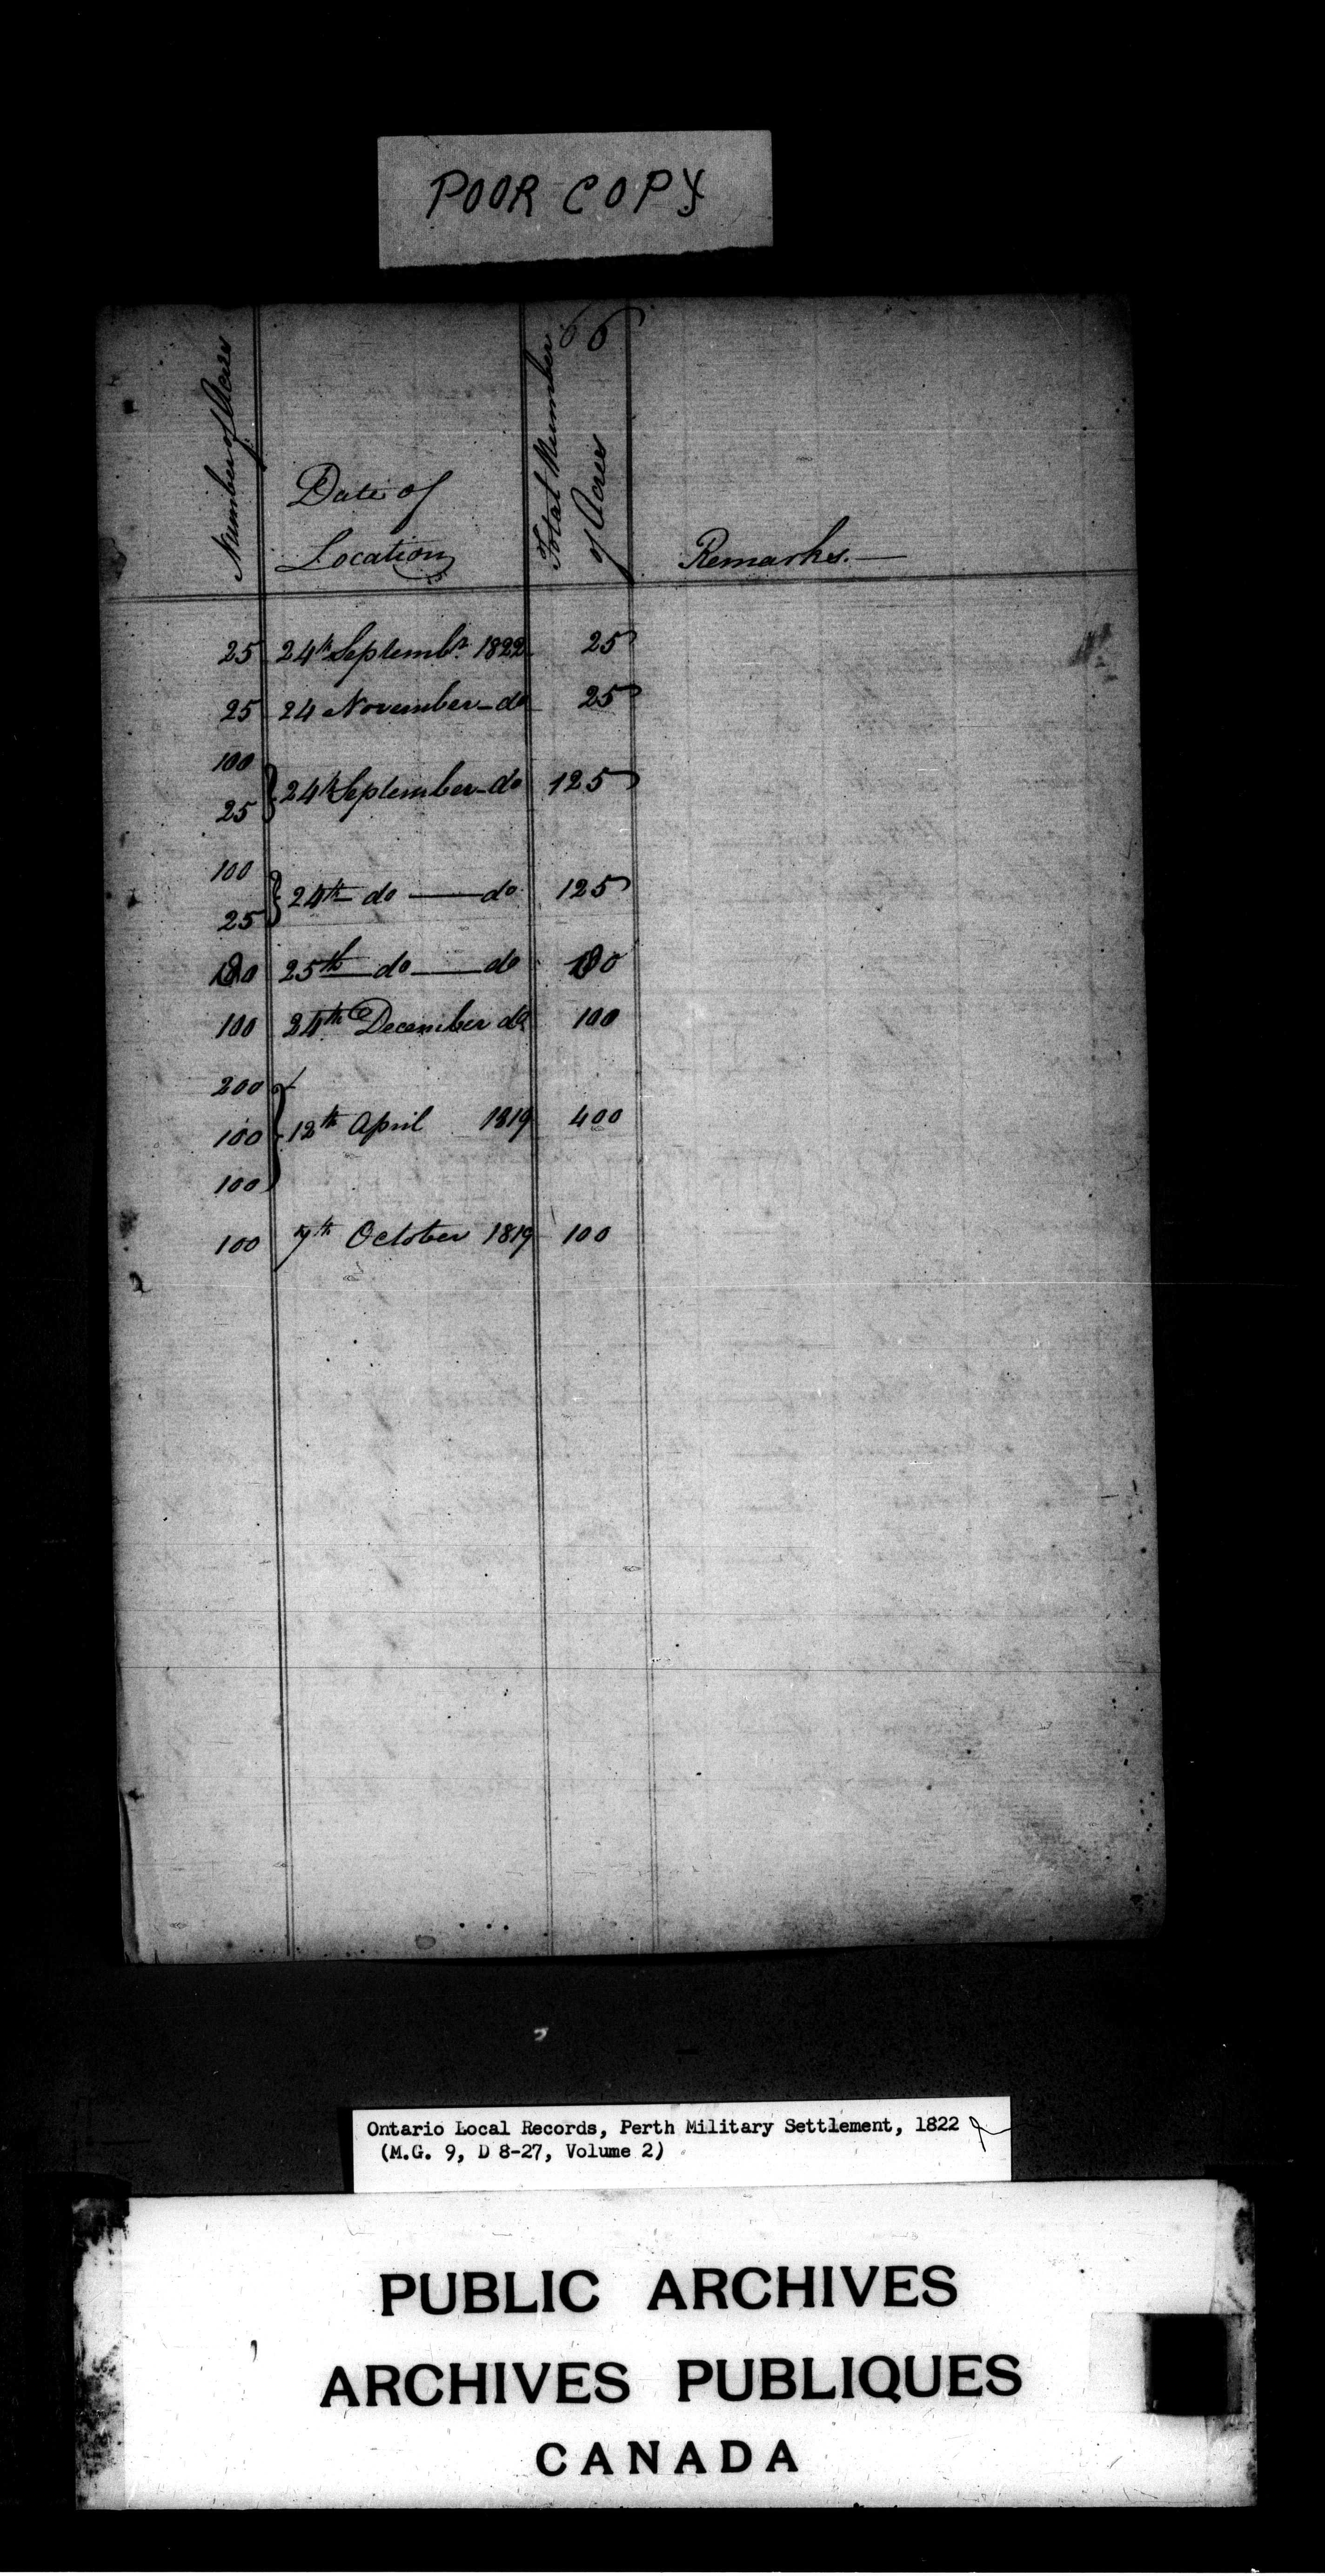 POOR COPY
66
Number of Acres
Date of
Location
Total Number
of Acres
Remarks.—
25 24th Septembr. 1822 25
25 24 November - do 25
100
24th September - do 125
25
100
24th do — do 125
25
25th do — do
100 24th December do 100
200
100 12th April 1819 400
100
100 7th October 1819 100
Ontario Local Records, Perth Military Settlement, 1822
(M.G. 9, D 8-27, Volume 2)
PUBLIC ARCHIVES
ARCHIVES PUBLIQUES
CANADA